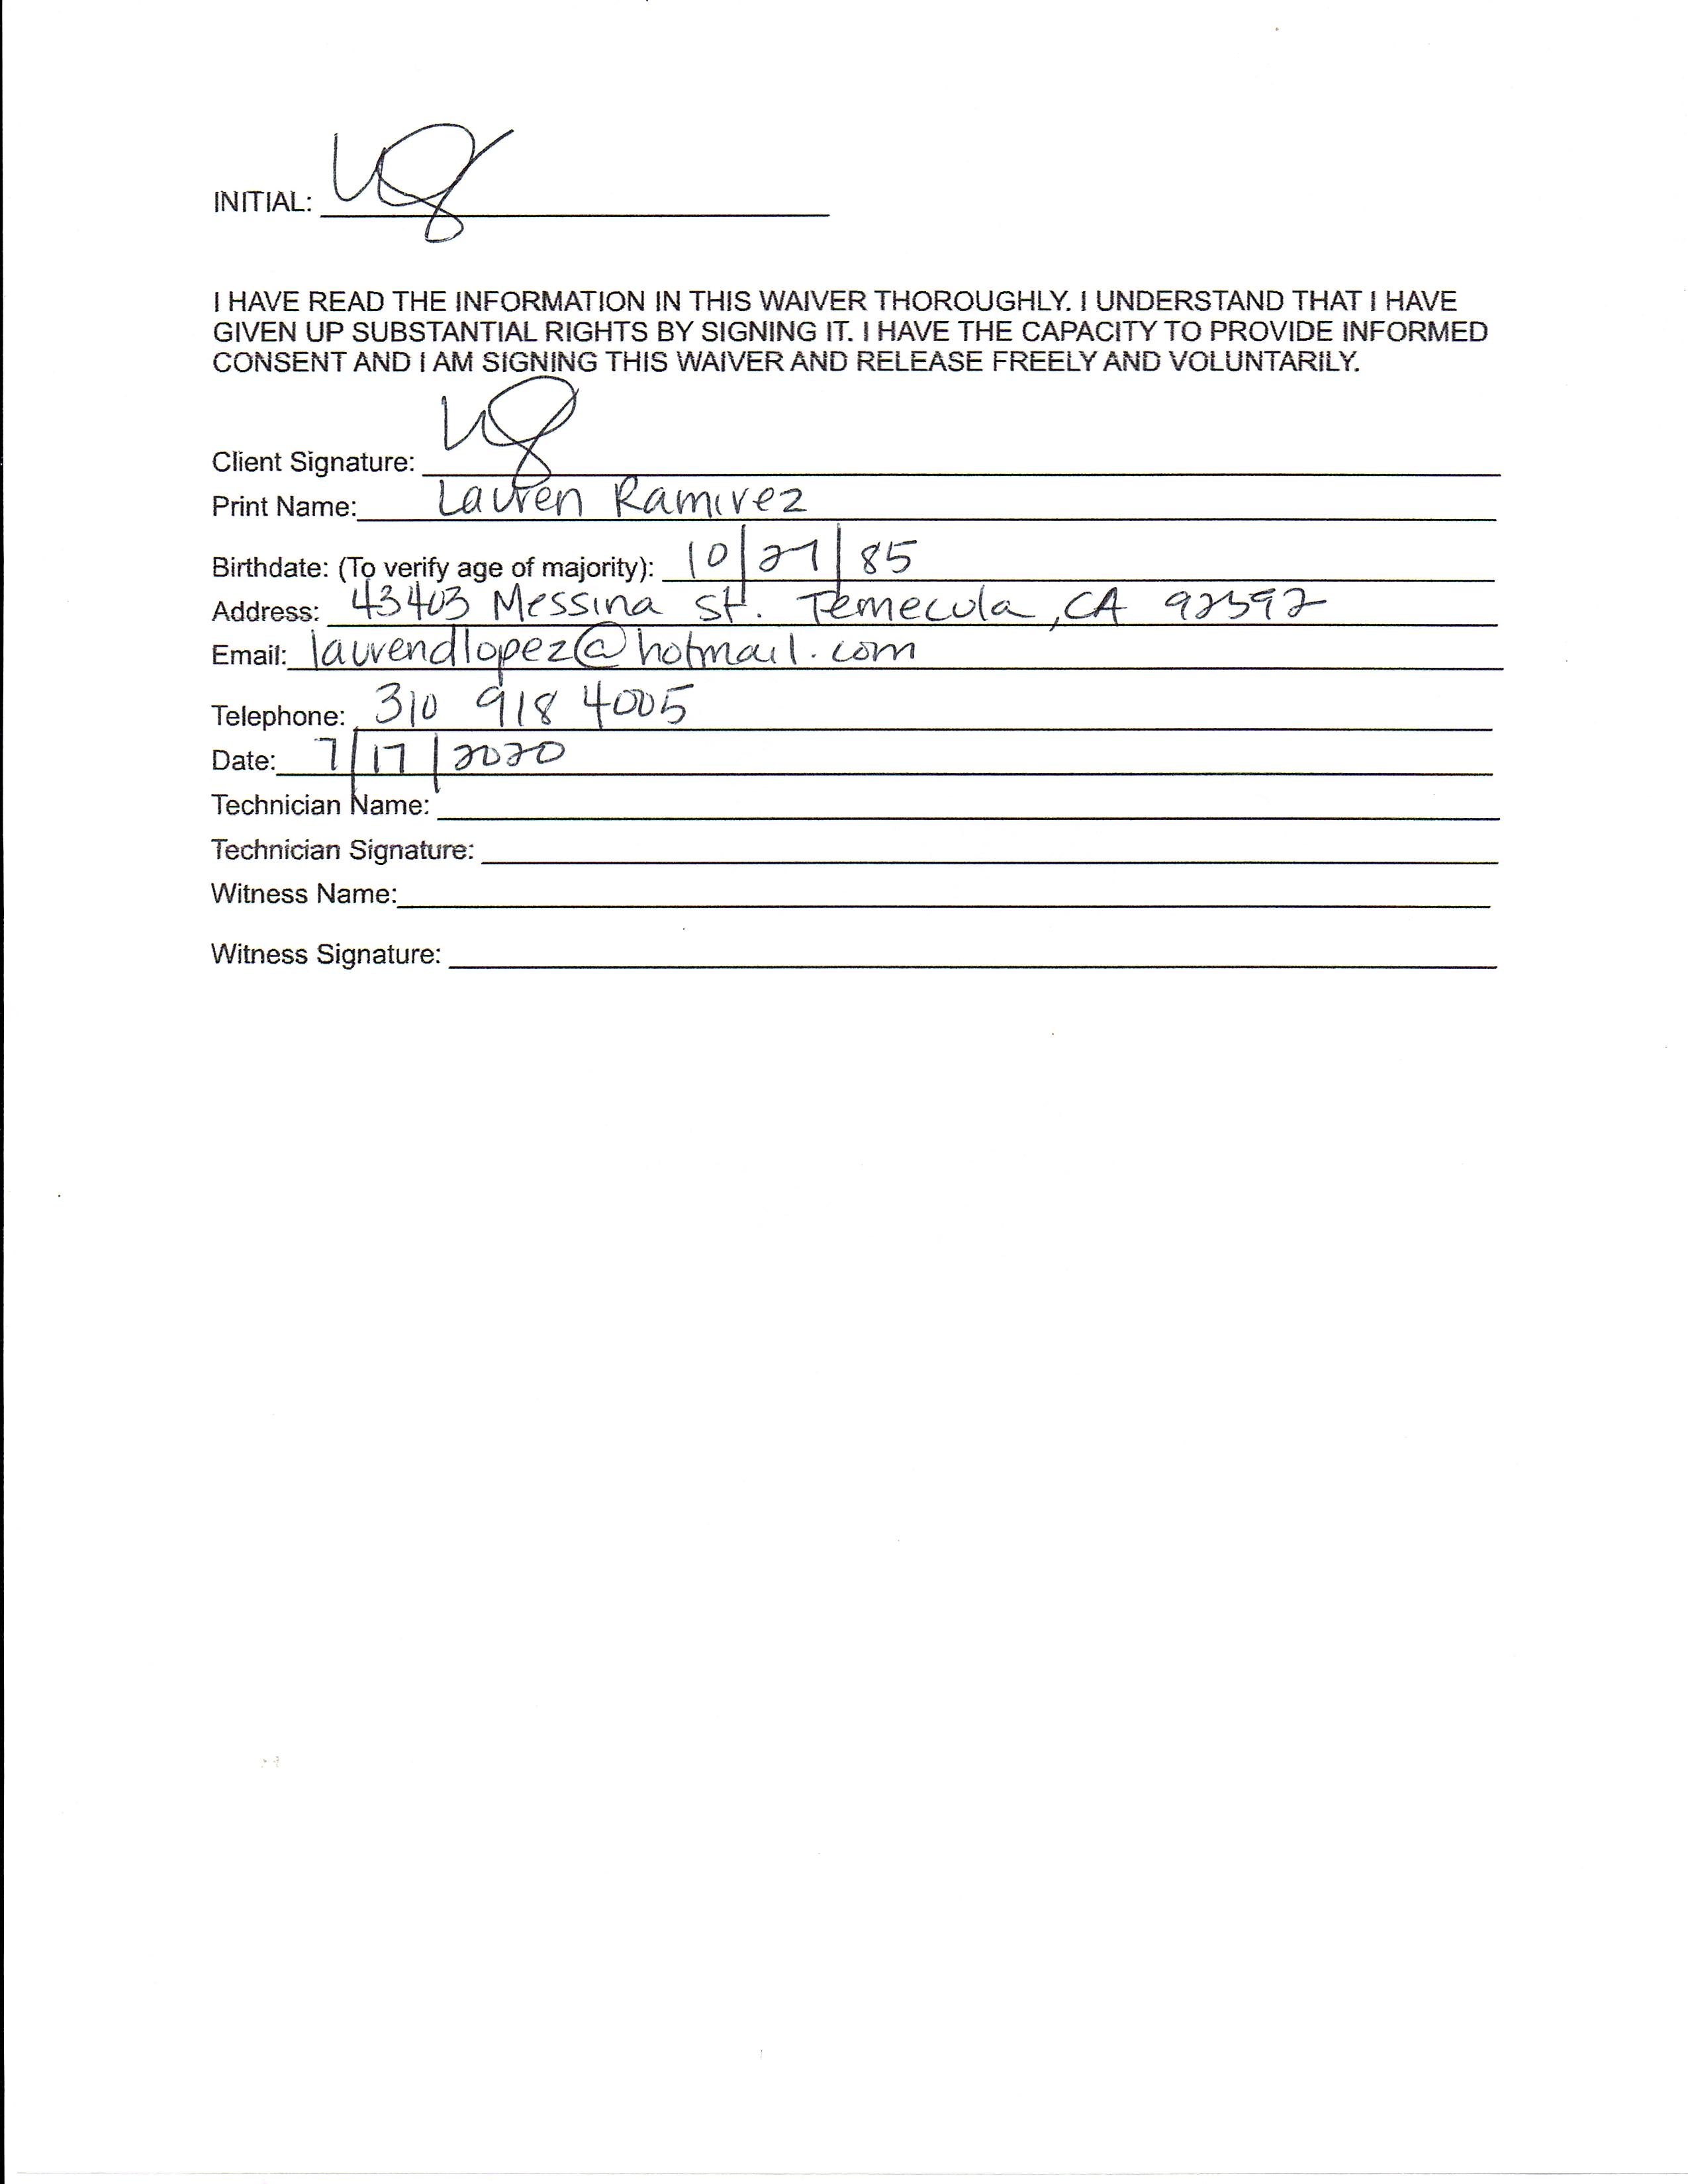 INITIAL:
I HAVE READ THE INFORMATION IN THIS WAIVER THOROUGHLY. I UNDERSTAND THAT I HAVE
GIVEN UP SUBSTANTIAL RIGHTS BY SIGNING IT. I HAVE THE CAPACITY TO PROVIDE INFORMED
CONSENT AND I AM SIGNING THIS WAIVER AND RELEASE FREELY AND VOLUNTARILY.
Client Signature:
Print Name: Lauren Ramirez
Birthdate: (To verify age of majority): 10/27/85
Address: 43403 Messina St. Temecula, CA 92592
Email: laurendlopez@hotmail.com
Telephone: 310 918 4005
Date: 7/17/2020
Technician Name:
Technician Signature:
Witness Name:
Witness Signature: